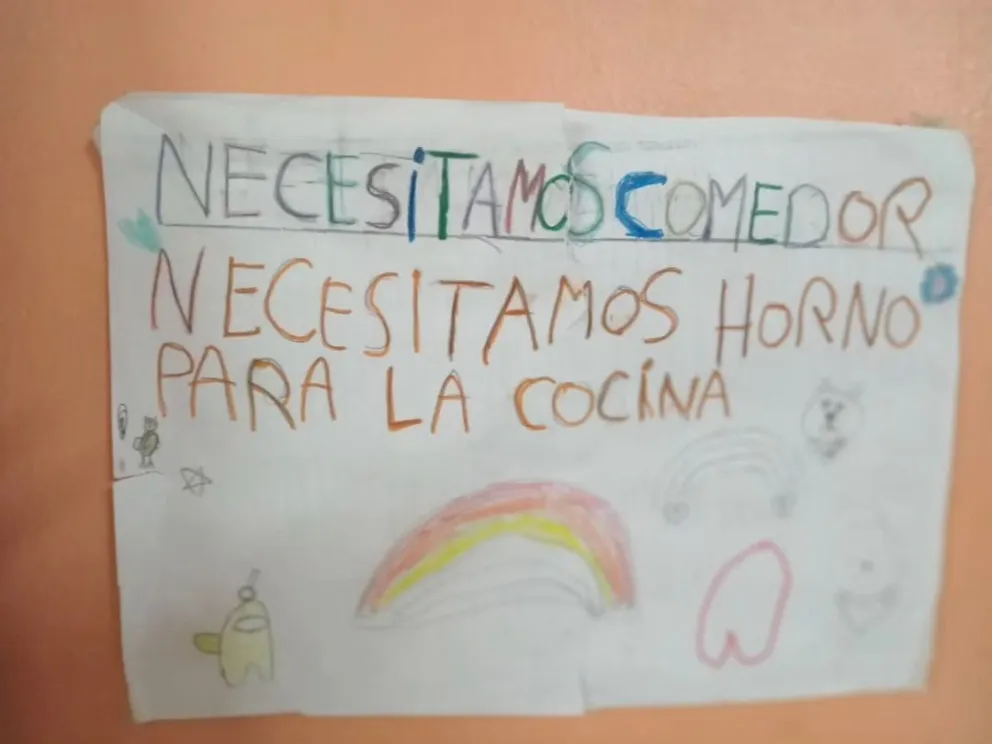 NECESiTAMOS COMEDOR
NECESITAMOS HORNO
PARA LA COCINA